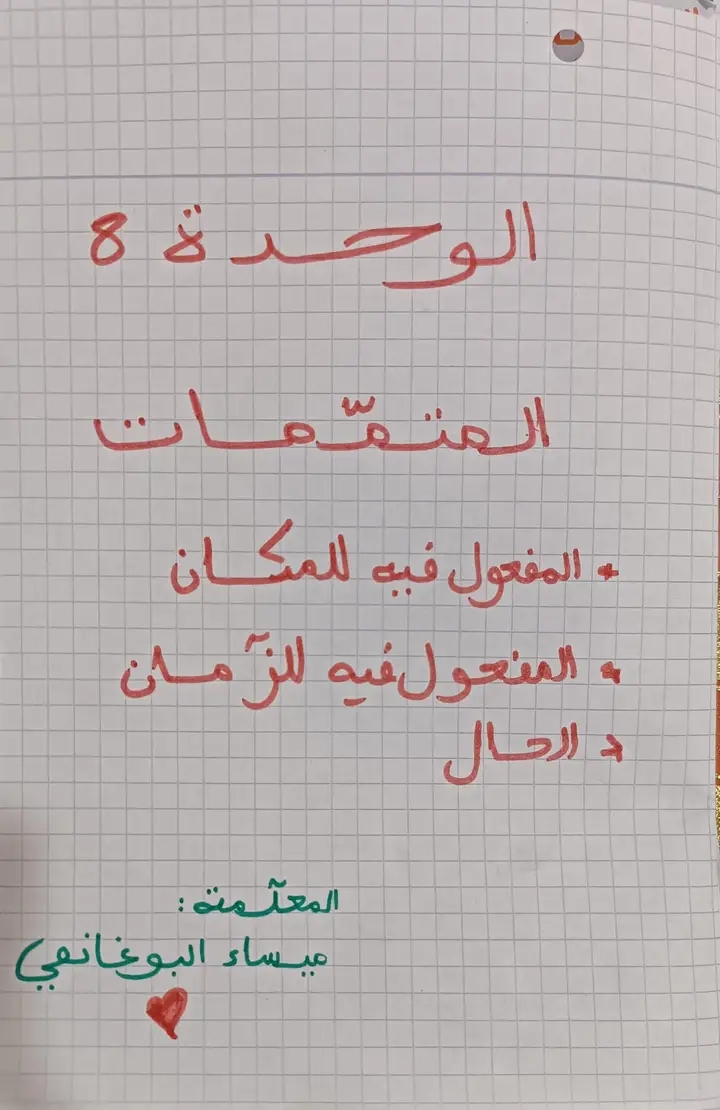 الوحدة 8
المتمّمات
* المفعول فيه للمكان
* المفعول فيه للزّمان
* الحال
المعلّمة :
ميساء البوغانمي